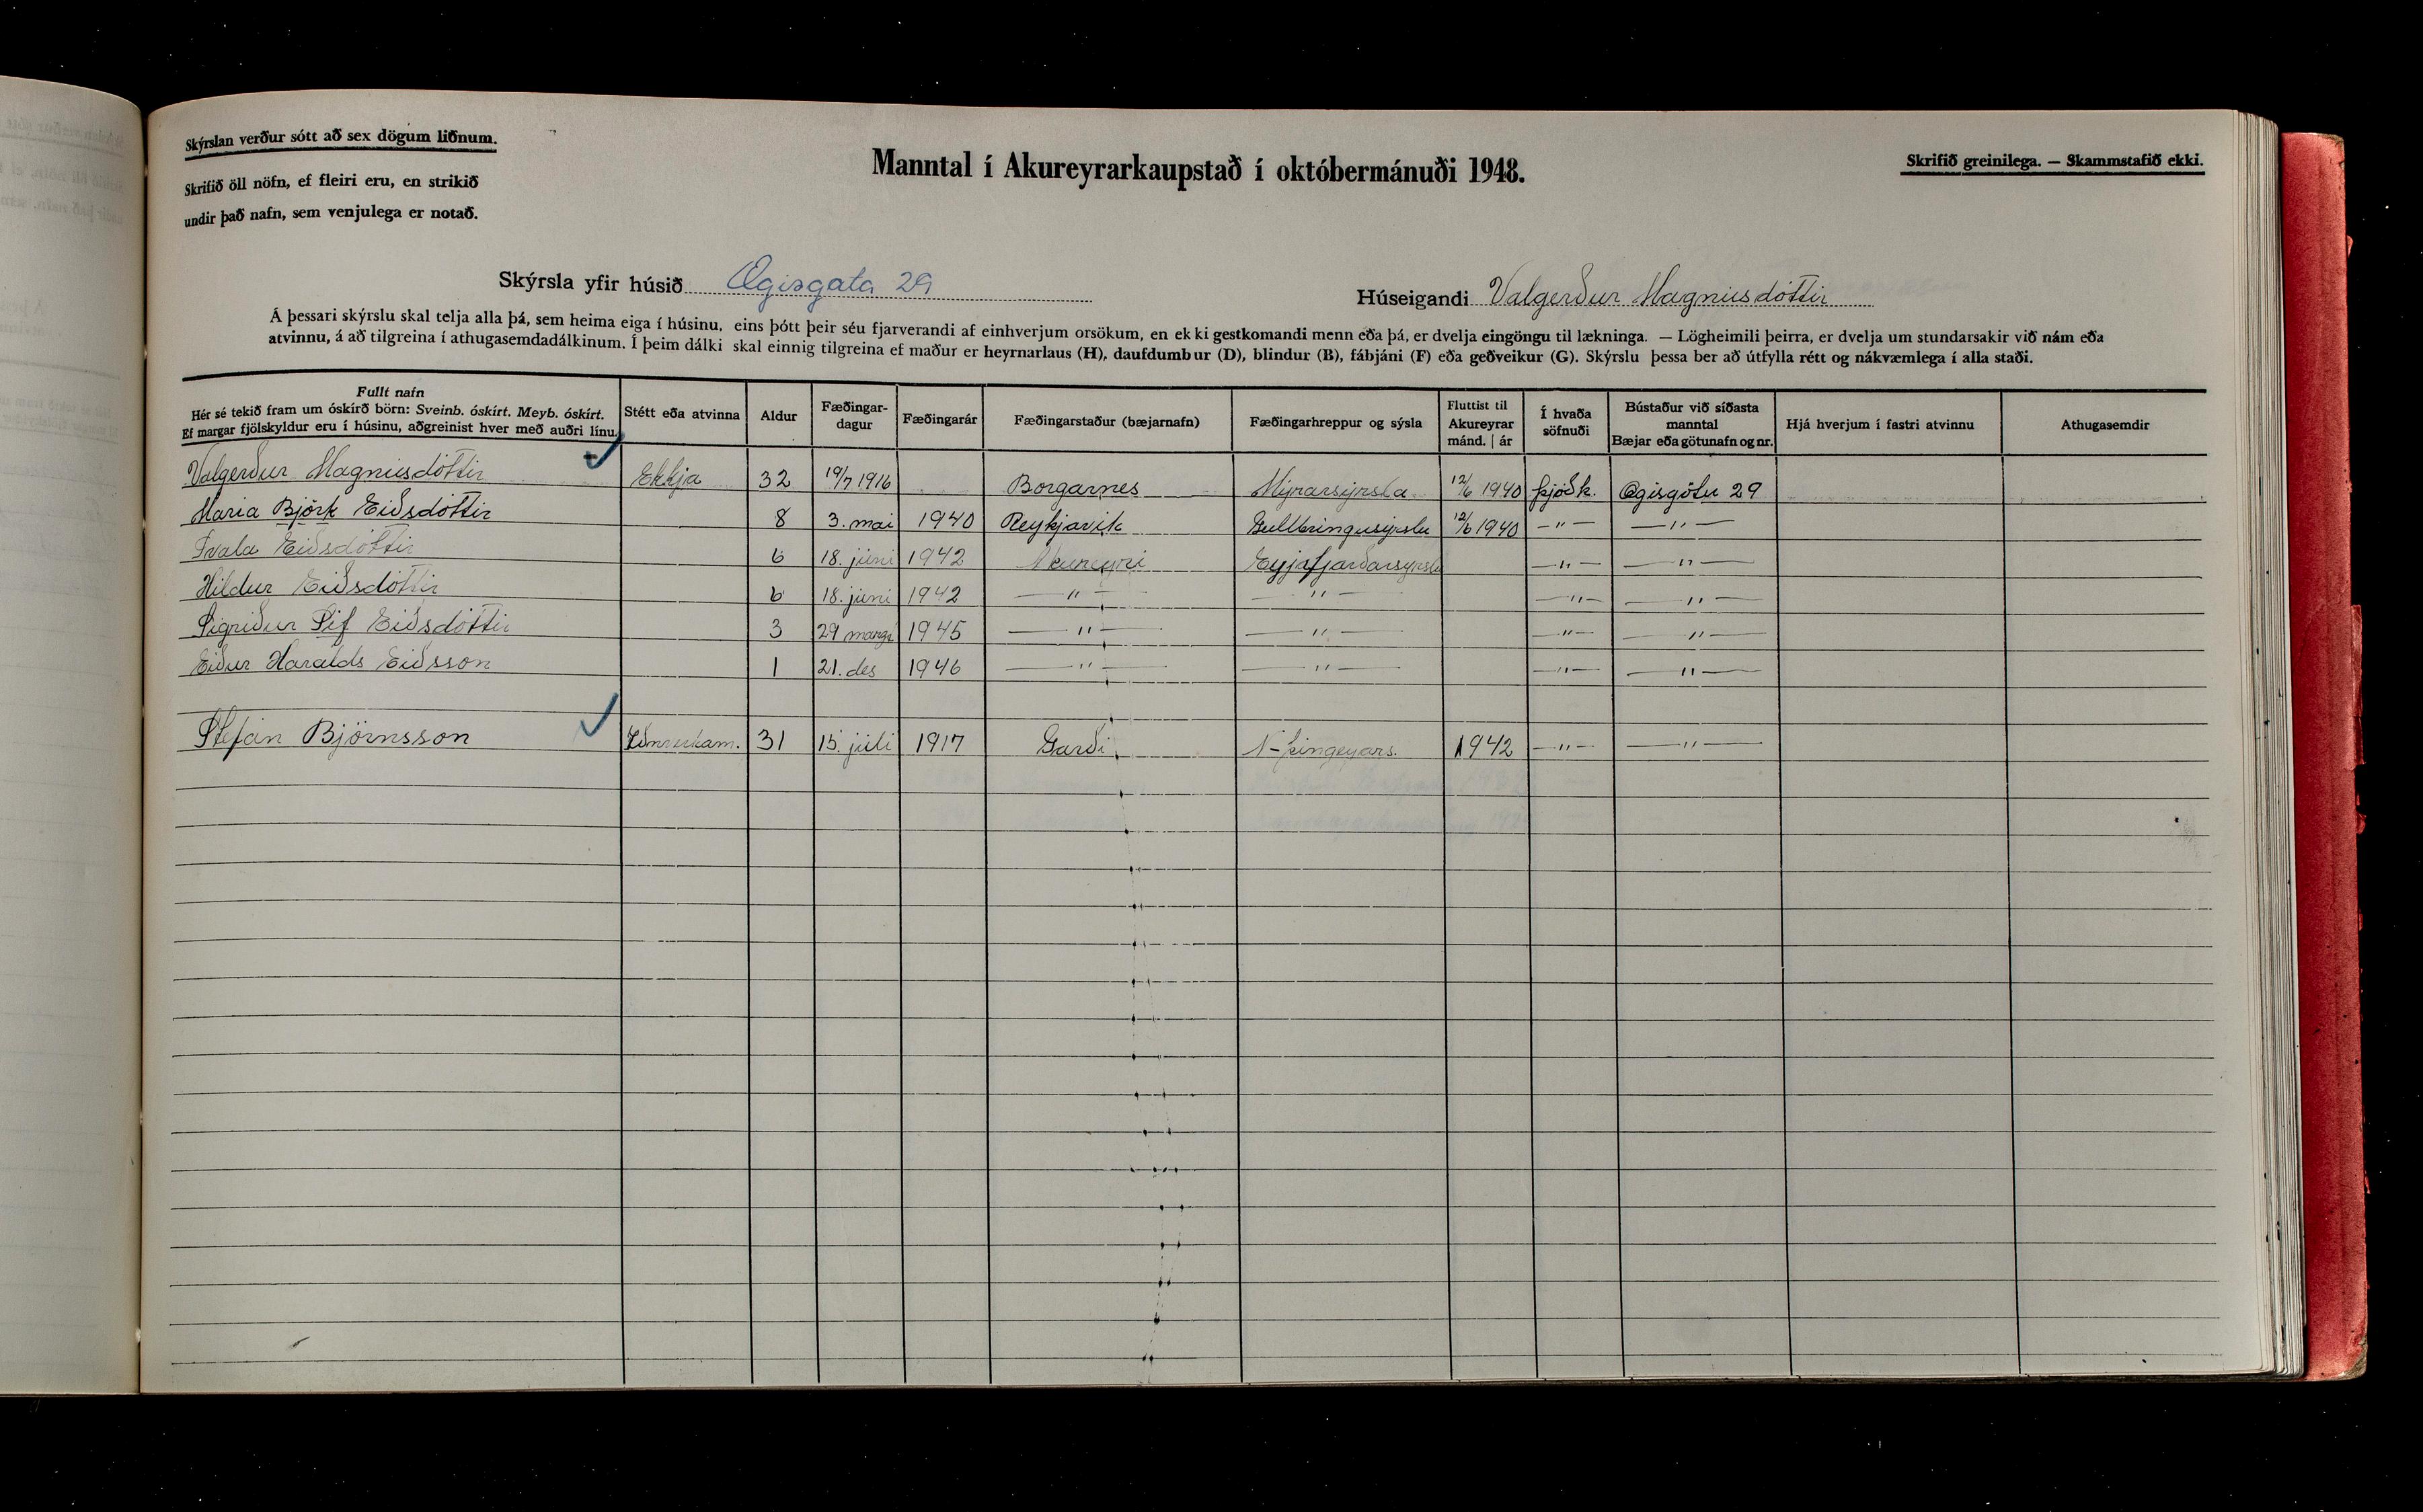 Skýrslan verður sótt að sex dögum liðnum.
Skrifið öll nöfn, ef fleiri eru, en strikið
undir það nafn, sem venjulega er notað.
Manntal í Akureyrarkaupstað í októbermánuði 1948.
Skrifið greinilega. — Skammstafið ekki.
Skýrsla yfir húsið Ægisgata 29
Húseigandi Valgerður Magnúsdóttir
Á þessari skýrslu skal telja alla þá, sem heima eiga í húsinu, eins þótt þeir séu fjarverandi af einhverjum orsökum, en ekki gestkomandi menn eða þá, er dvelja eingöngu til lækninga. — Lögheimili þeirra, er dvelja um stundarsakir við nám eða
atvinnu, á að tilgreina í athugasemdadálkinum. Í þeim dálki skal einnig tilgreina ef maður er heyrnarlaus (H), daufdumbur (D), blindur (B), fábjáni (F) eða geðveikur (G). Skýrslu þessa ber að útfylla rétt og nákvæmlega í alla staði.
Fullt nafn
Hér sé tekið fram um óskírð börn: Sveinb. óskírt. Meyb. óskírt.
Ef margar fjölskyldur eru í húsinu, aðgreinist hver með auðri línu.
Stétt eða atvinna
Aldur
Fæðingar-
dagur
Fæðingarár
Fæðingarstaður (bæjarnafn)
Fæðingarhreppur og sýsla
Fluttist til
Akureyrar
mánd. | ár
Í hvaða
söfnuði
Bústaður við síðasta
manntal
Bæjar eða götunafn og nr.
Hjá hverjum í fastri atvinnu
Athugasemdir
Valgerður Magnúsdóttir Ekkja 32 19/7 1916 Borgarnes Mýrarsýrsla 12/6 1940 þjóðk. Ægisgötu 29
Maria Björk Eiðsdóttir 8 3. mai 1940 Reykjavik Gullbringusýrslu 12/6 1940 —"— —"—
Svala Eiðsdóttir 6 18. júni 1942 Akureyri Eyjafjarðarsýrslu —"— —"—
Hildur Eiðsdóttir 6 18. júni 1942 —"— —"— —"— —"—
Sigriður Sif Eiðsdóttir 3 29 mars 1945 —"— —"— —"— —"—
Eiður Haralds Eiðsson 1 21. des 1946 —"— —"— —"— —"—
Stefán Björnsson 31 15. júli 1917 Garði N-þingeyars. 1942 —"— —"—